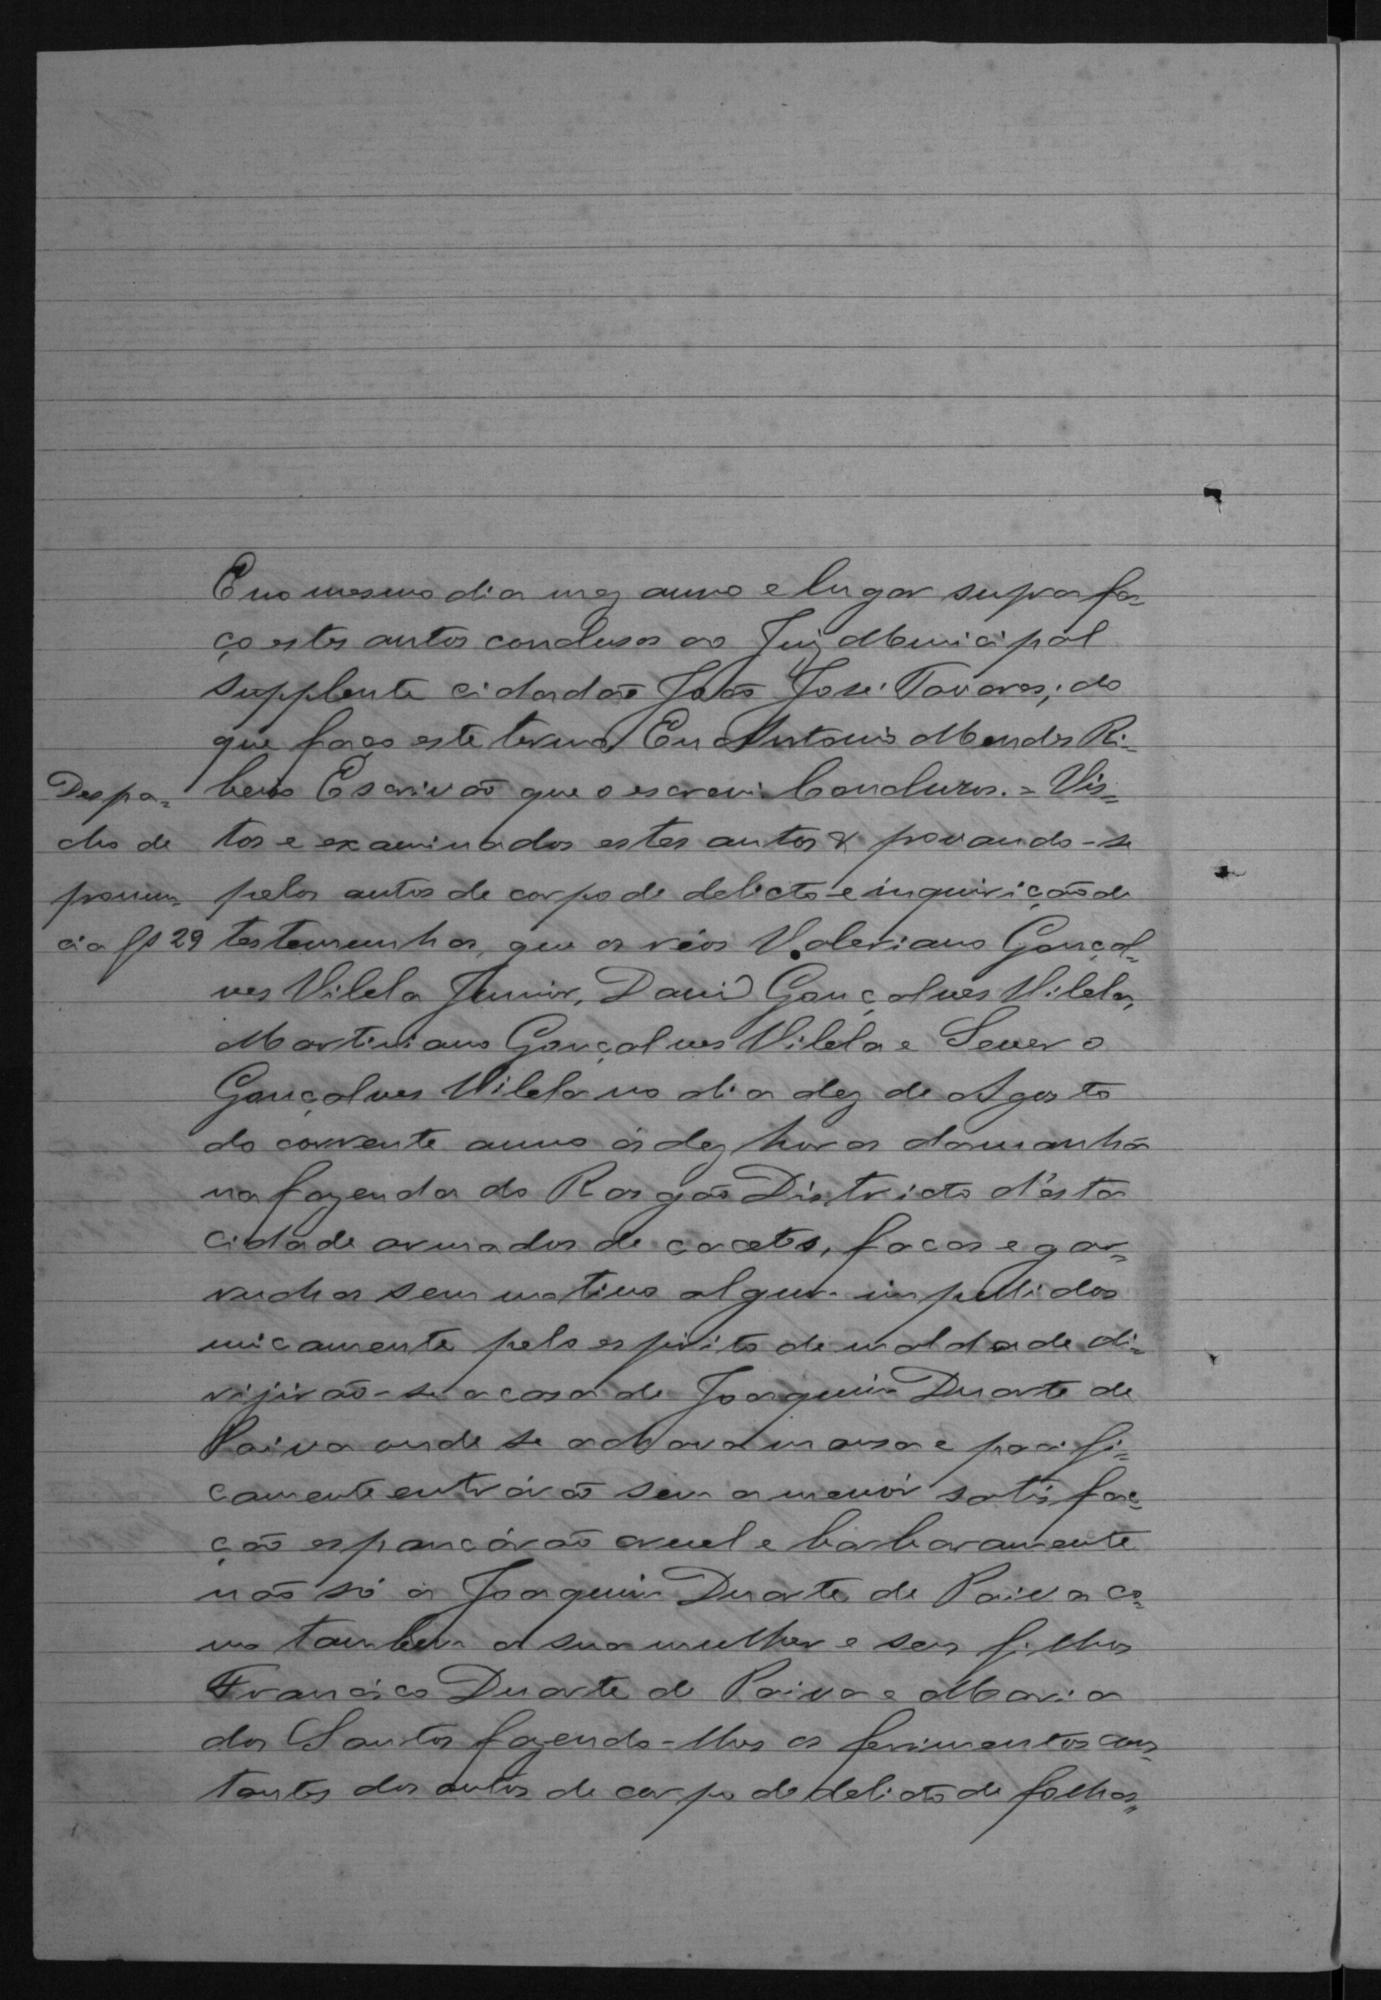 E no mesmo dia mez anno e lugar supra fa-
ço estes autos conclusos ao Juiz Municipal
Supplente cidadão João José Tavares; do
que faço este termo Eu Antonio Mendes Ri-
beiro Escrivão que o escrevi. Concluzos. = Vis-
tos e examinados estes autos & provando-se
pelos autos de corpo de delicto e inquirição de
testemunhas, que os réos Valeriano Gonçal-
ves Vilela Junior, David Gonçalves Vilela,
Martiniano Gonçalves Vilela e Severo
Gonçalves Vilela no dia dez de Agosto
do corrente anno ás dez horas da manhã
na fazenda do Rasgão Districto d'ésta
cidade armados de cacetes, facas e gar-
ruchas sem motivo algum impellidos
unicamente pelo espirito de maldade di-
rijirão-se a casa de Joaquim Duarte de
Paiva onde se achava mansa e pacifi-
camente entrárão sem a menór satisfac-
ção espancárão cruel e barbaramente
não só a Joaquim Duarte de Paiva co-
mo tambem a sua mulher e seus filhos
Francisco Duarte de Paiva e Maria
dos Santos fazendo-lhes os ferimentos cons-
tantes dos autos de corpo de delicto de folhas,,
Despa-
cho de
pronun-
cia fs 29